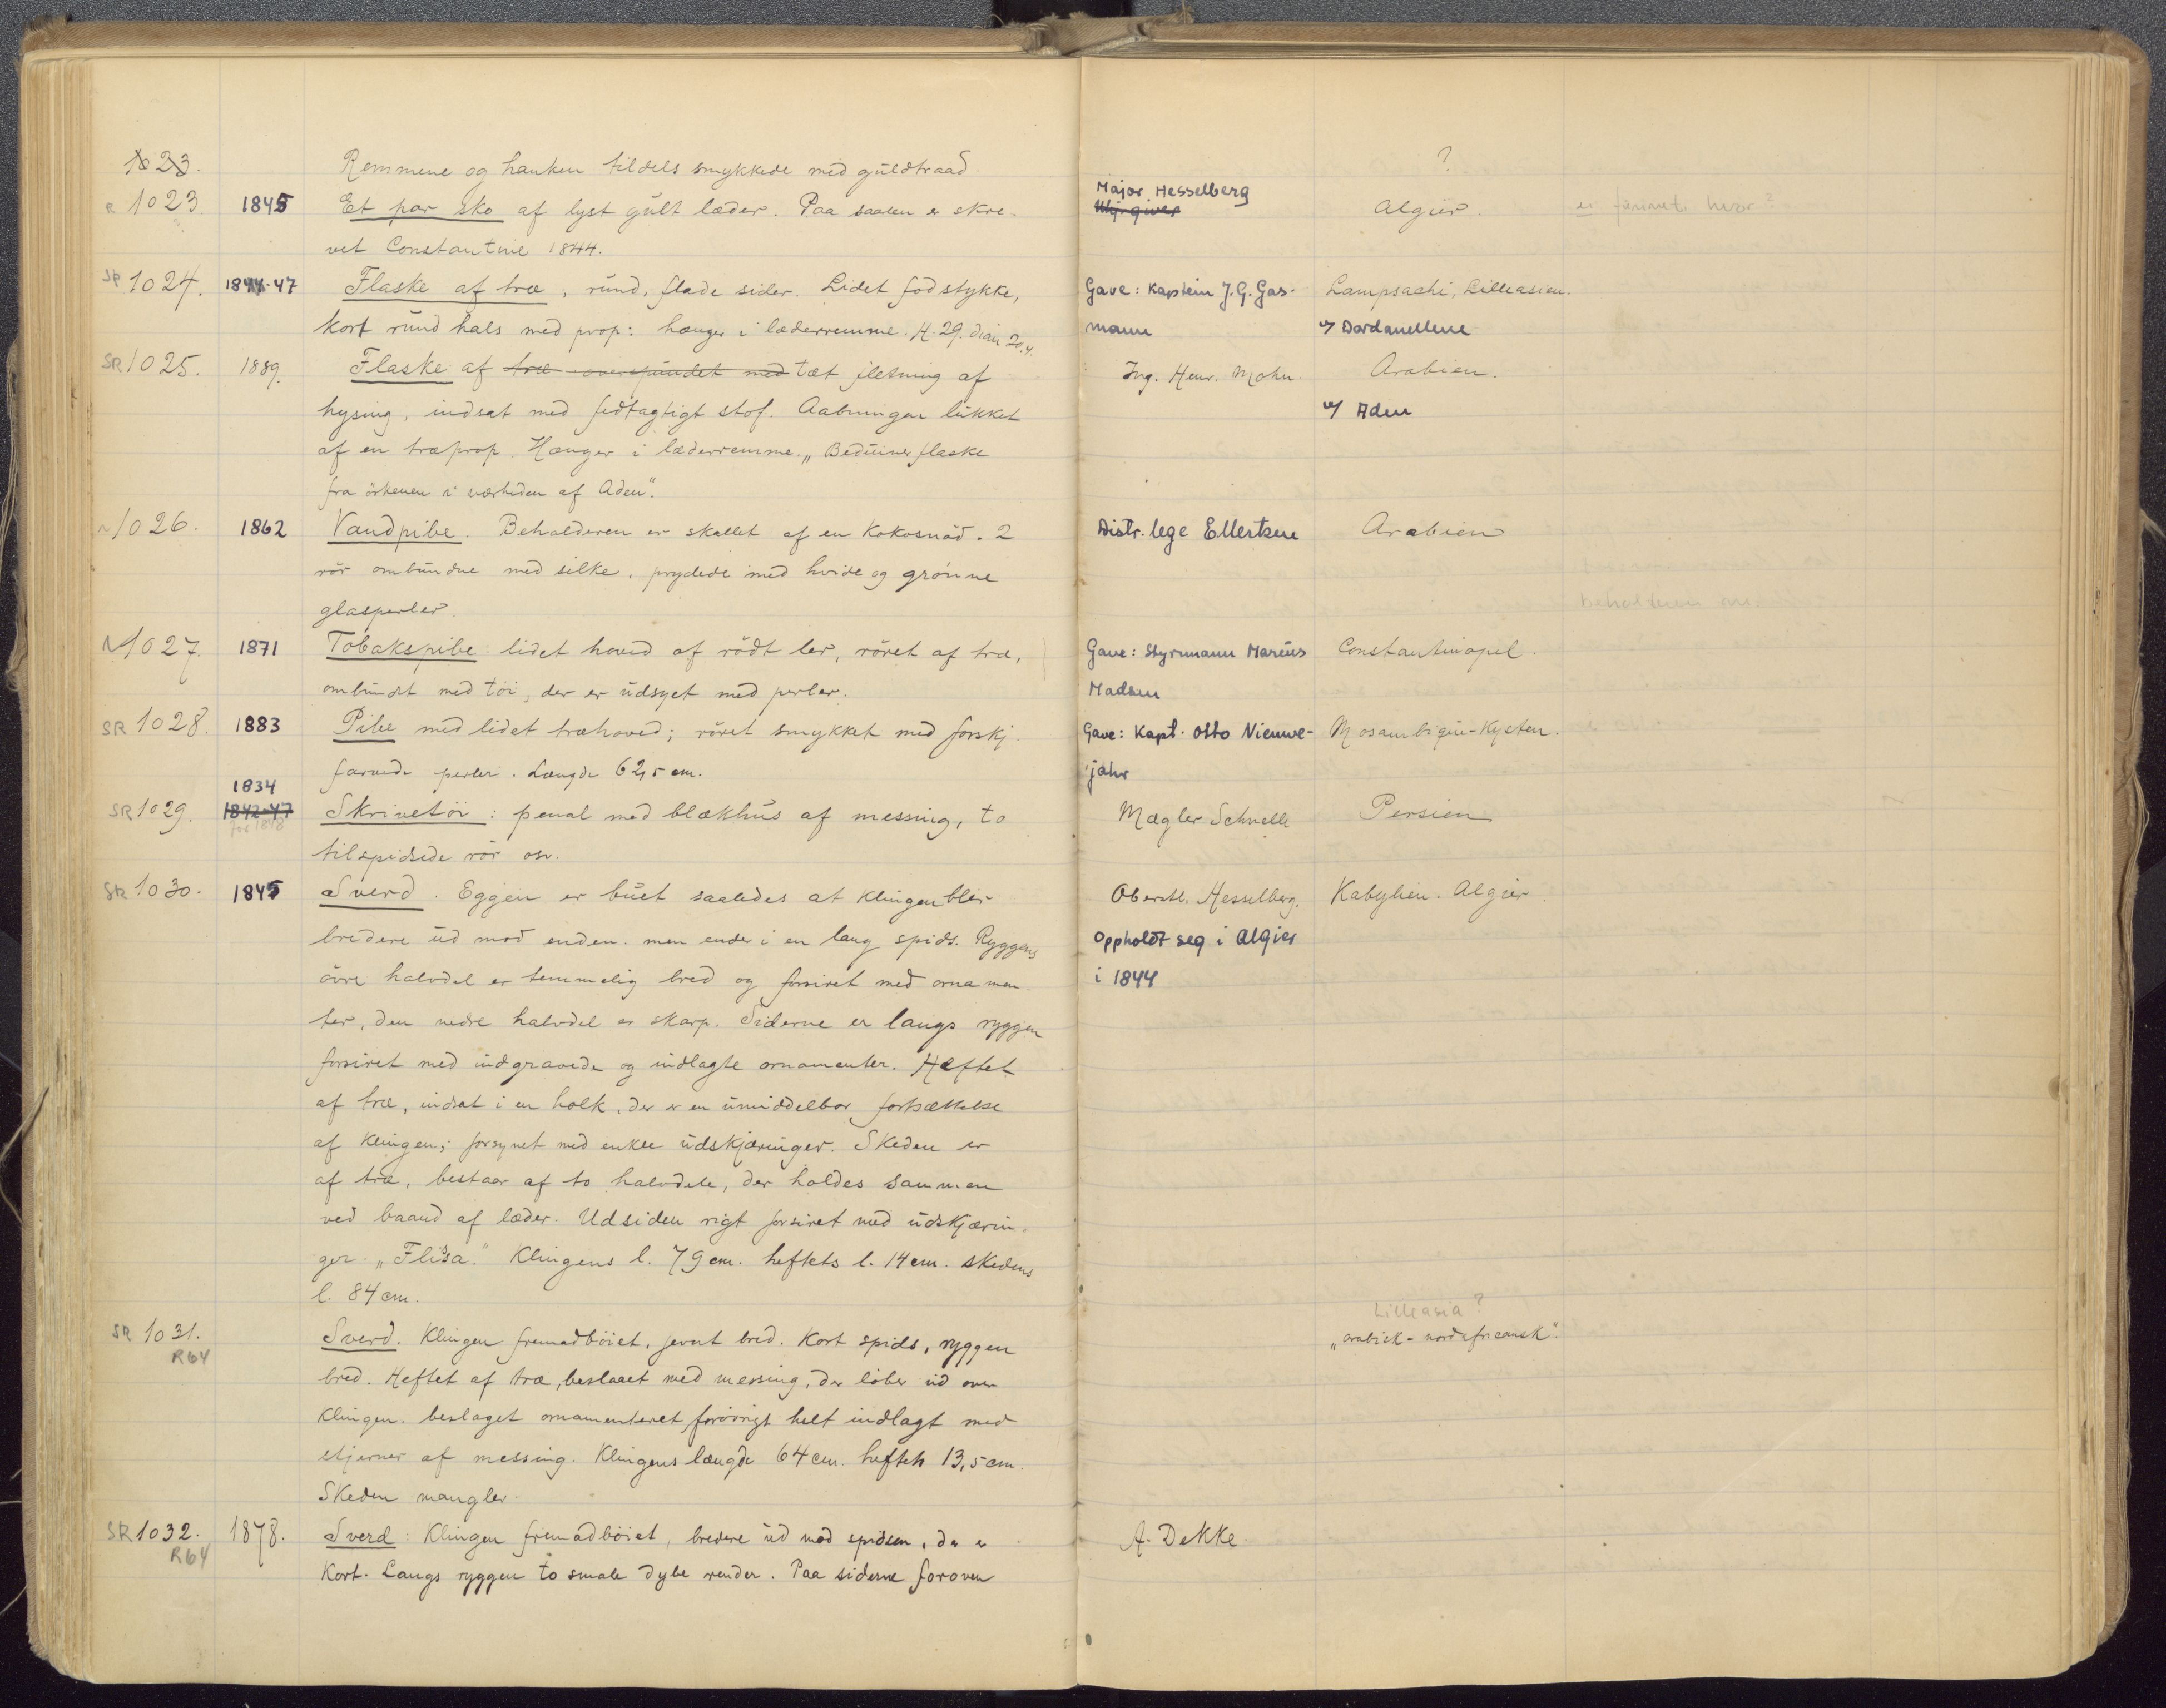 1023. Remmene og hanken tildels smykkede med guldtraad. ?
R 1023 1845 Et par sko af lyst gult læder. Paa saalen er skre- Major Hesselberg Algier. er funnet. hvor?
vet Constantine 1844.
SR 1024. 1844-47 Flaske af træ, rund, flade sider. Lidet fodstykke, Gave: Kaptein J. G. Gas- Lampsachi, Lilleasien.
kort rund hals med prop: hænger i læderremme. H. 29. diam 20,4. mann v/ Dardanellene
SR 1025. 1889. Flaske af træ overspundet med tæt fletning af Ing. Henr. Mohn. Arabien.
hysing, indsat med fedtagtigt stof. Aabningen lukket v/ Aden
af en træprop. Hænger i læderremme. „Beduinerflaske
fra örkenen i nærheden af Aden".
1026. 1862 Vandpibe. Beholderen er skallet af en Kokosnöd. 2 Distr. lege Ellertsen Arabien
rör ombundne med silke, prydede med hvide og grönne
glasperler. beholderen
1027. 1871 Tobakspibe: lidet hoved af rödt ler, röret af træ, Gave: Styrmann Marius Constantinopel.
ombundet med töi, der er udsyet med perler. Madsen
SR 1028. 1883 Pibe med lidet træhoved; röret smykket med forskj. Gave: Kapt. Otto Nieuwe- Mosambique-Kysten.
farvede perler. Længde 62,5 cm. jahr
1834
SR 1029. 1842-47 Skrivetöi: penal med blækhus af messing, to Mægler Schnelle Persien
før 1848 tilspidsede rör osv.
SR 1030. 1845 Sverd. Eggen er buet saaledes at Klingen blir Oberstl. Hesselberg. Kabylien. Algier.
bredere ud mod enden. men ender i en lang spids. Ryggens Oppholdt seg i Algier
övre halvdel er temmelig bred og forsiret med ornamen- i 1844
ter, den nedre halvdel er skarp. Siderne er langs ryggen
forsiret med indgravede og indlagte ornamenter. Hæftet
af træ, indsat i en holk, der er en umiddelbar fortsættelse
af Klingen; forsynet med enkle udskjæringer. Skeden er
af træ, bestaar af to halvdele, der holdes sammen
ved baand af læder. Udsiden rigt forsiret med udskjærin-
ger. „Flisa." Klingens l. 79 cm. heftets l. 14 cm. skedens
l. 84 cm.
Lilleasia?
SR 1031. Sverd. Klingen fremadböiet, jevnt bred. Kort spids, ryggen „arabisk-nordafricansk".
R64 bred. Heftet af træ, beslaaet med messing, der löber ud over
Klingen. beslaget ornamenteret, forövrigt helt indlagt med
stjerner af messing. Klingens længde 64 cm. heftets 13,5 cm.
Skeden mangler.
SR 1032. 1878. Sverd: Klingen fremadböiet, bredere ud mod spidsen, der er A. Dekke.
R64 Kort. Langs ryggen to smale dybe render. Paa siderne foroven